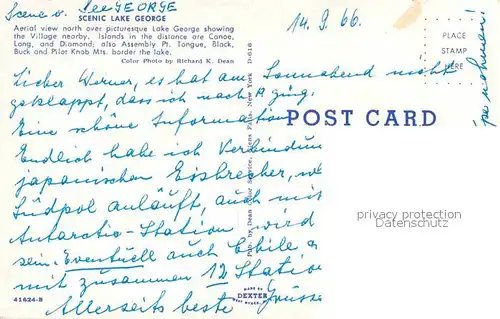 Scene v. SeeGEORGE
SCENIC LAKE GEORGE
Aerial view north over picturesque Lake George showing
the Village nearby. Islands in the distance are Canoe,
Long, and Diamond; also Assembly Pt. Tongue, Black,
Buck and Pilot Knob Mts. border the lake.
Color Photo by Richard K. Dean
14.9.66.
PLACE
STAMP
HERE
Lieber Werner, es hat am Sonnabend nicht
geklappt, dass ich nach P ging.
Eine schöne Information
Endlich habe ich Verbindun
japanischen Eisbrecher, w
Südpol anläuft, auch mit
Antarctic-Station wird
sein. Eventuell auch Chile
mit zusammen 12 Statio
Allerseits beste Grüsse
POST CARD
Pub. by Dean Color Service, Glens Falls, New York D-616
privacy protection
Datenschutz
41624-B
MADE BY
DEXTER
WEST NYACK, N.Y.